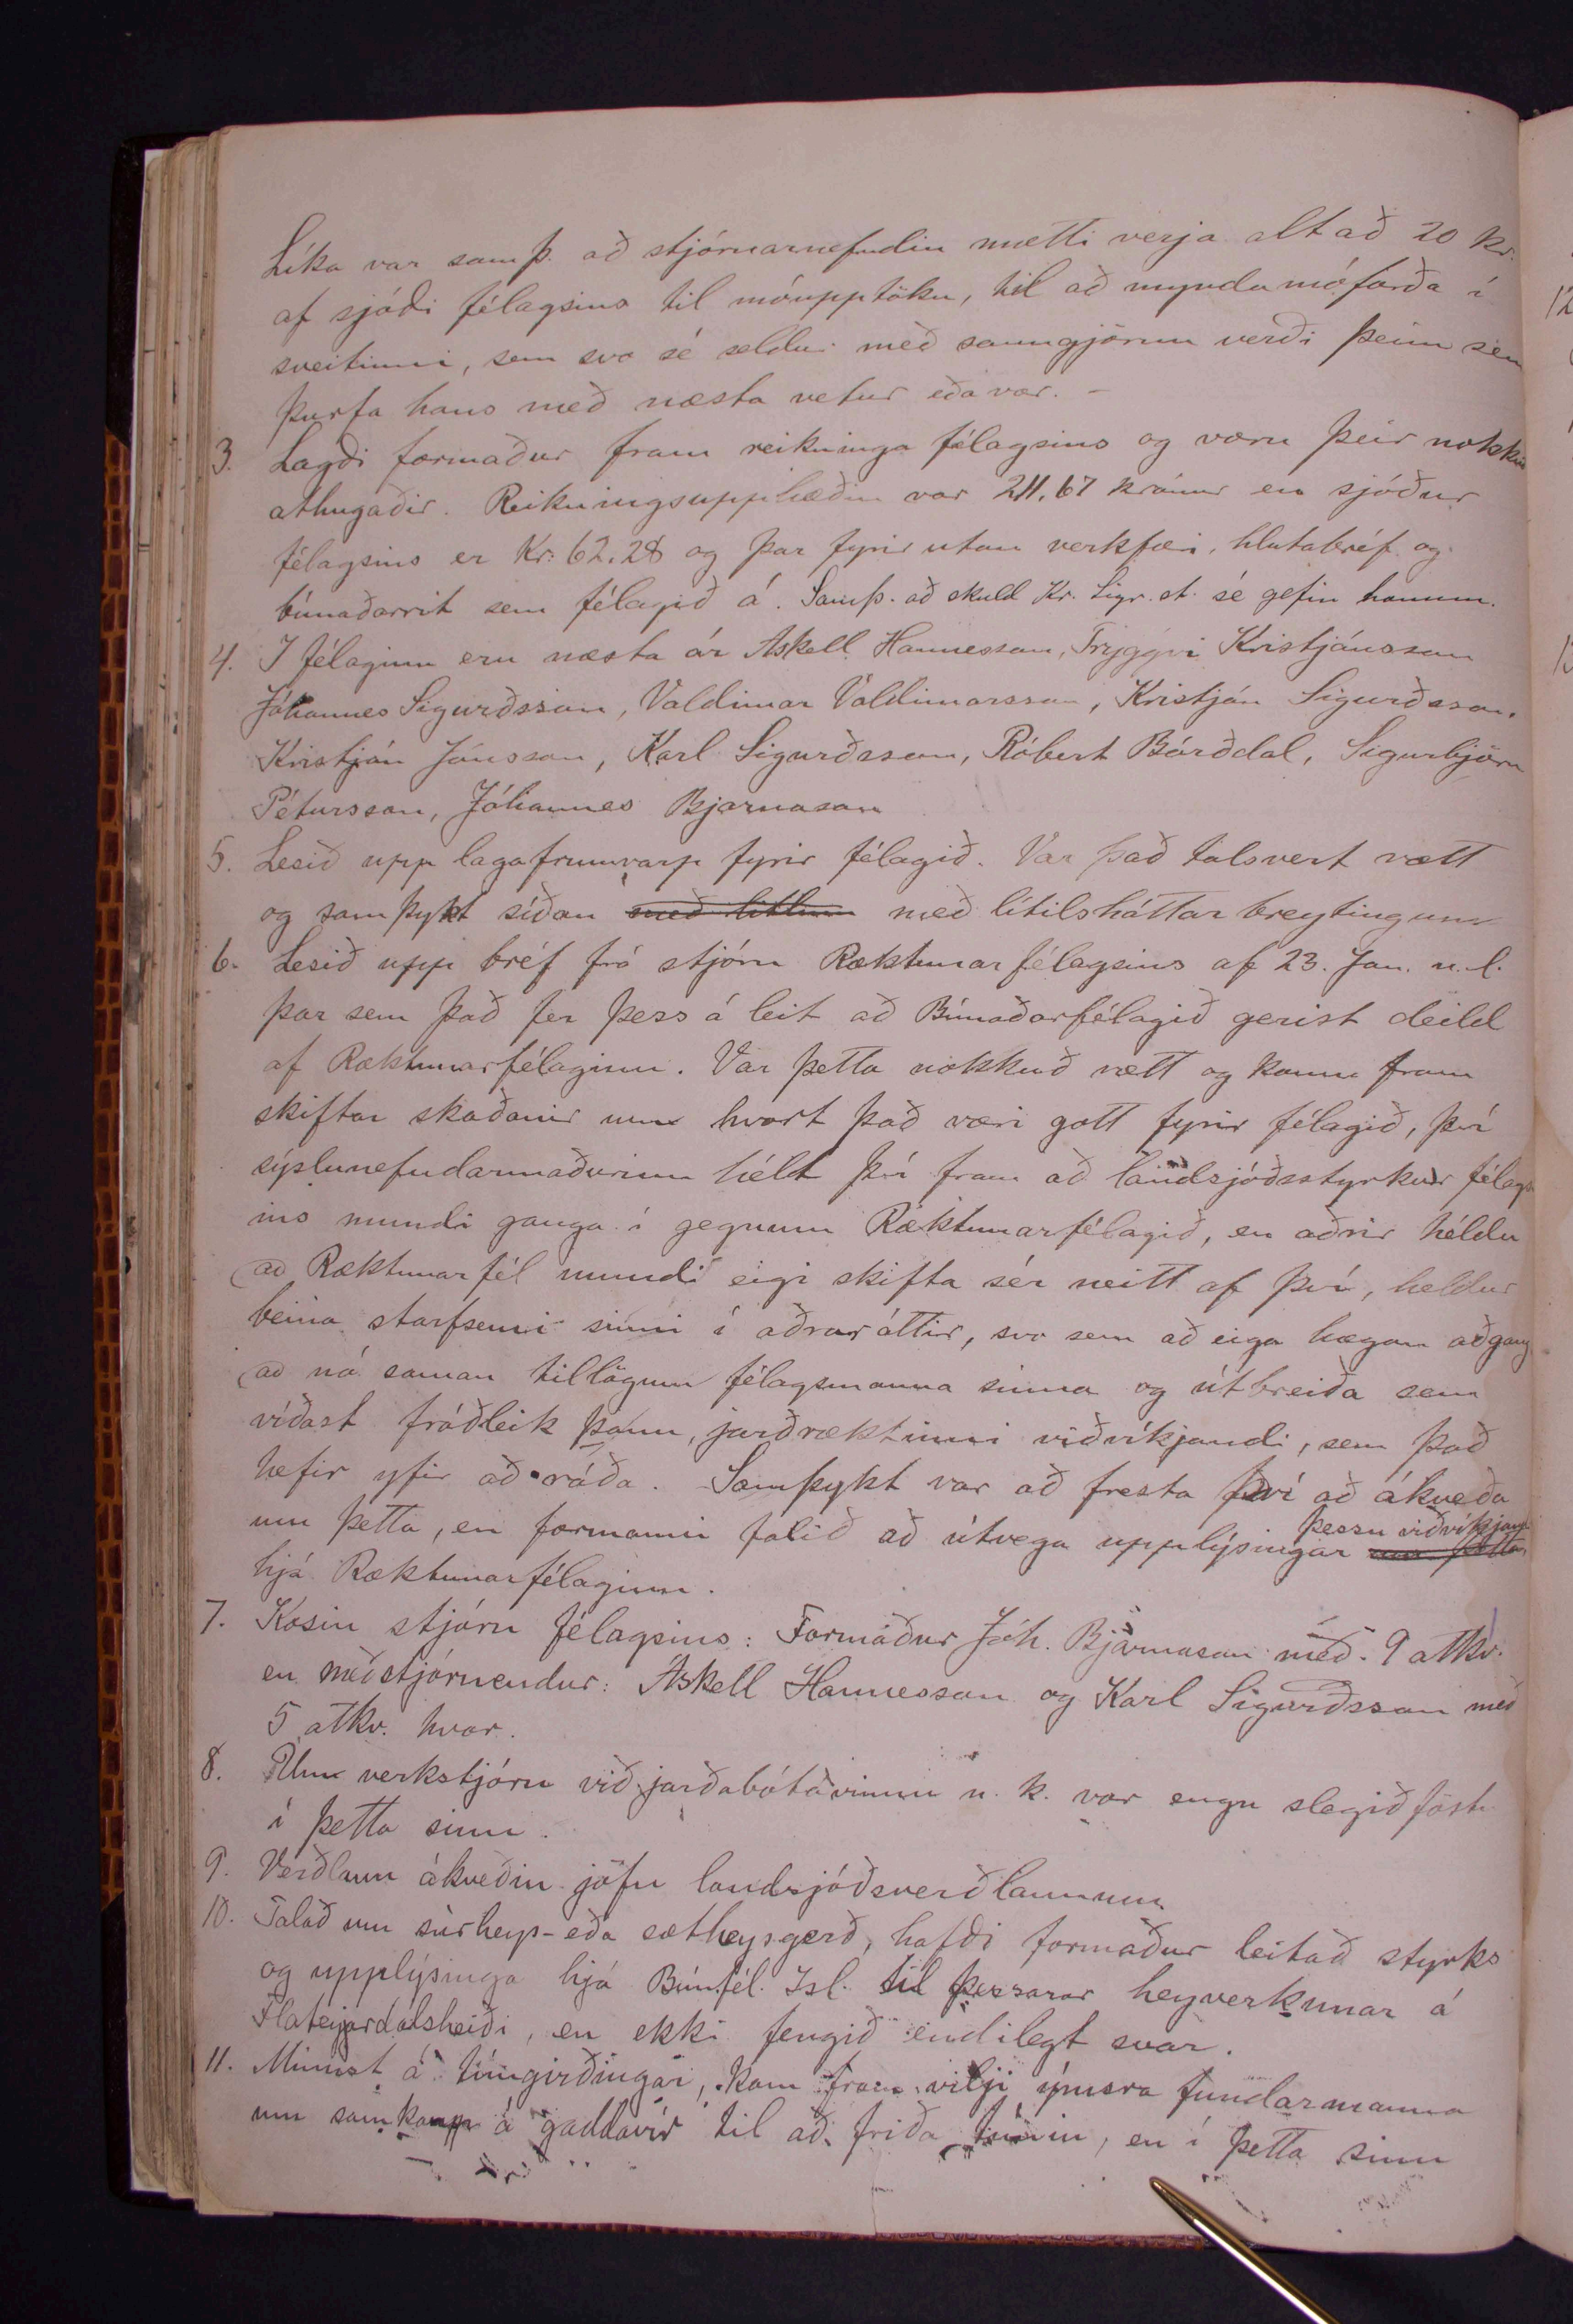 Líka var samþ. að stjórnarnefndin mætti verja alt að 20 kr.
af sjóði félagsins til móupptöku, til að mynda móforða í
sveitinni, sem svo sé seldur með sanngjörnu verði þeim sem
þurfa hans með næsta vetur eða vor. -
3. Lagði formaður fram reikninga félagsins og voru þeir nokkuð
athugaðir. Reikningsupphæðin var 211,67 krónur en sjóður
félagsins er Kr: 62.28 og þar fyrir utan verkfæri, hlutabréf og
búnaðarrit sem félagið á. Samþ. að skuld Kr. Sigr. st. sé gefin honum.
4. Í félaginu eru næsta ár Áskell Hannesson, Tryggvi Kristjánsson
Jóhannes Sigurðsson, Valdimar Valdimarsson, Kristján Sigurðsson,
Kristján Jónsson, Karl Sigurðsson, Róbert Bárðdal, Sigurbjörn
Pétursson, Jóhannes Bjarnason
5. Lesið upp lagafrumvarp fyrir félagið. Var það talsvert rætt
og samþykt síðan með litlum með lítilsháttar breytingum
6. Lesið upp bréf frá stjórn Ræktunarfélagsins af 23. Jan. n.l.
þar sem það fer þess á leit að Búnaðarfélagið gerist deild
af Ræktunarfélaginu. Var þetta nokkuð rætt og komu fram
skiftar skoðanir um hvort það væri gott fyrir félagið, því
sýslunefndarmaðurinn hélt því fram að landsjóðsstyrkur félags
ins mundi ganga í gegnum Ræktunarfélagið, en aðrir héldu
að Ræktunarfél mundi eigi skifta sér neitt af því, heldur
beina starfsemi sinni í aðrar áttir, svo sem að eiga hægan aðgang
að ná saman tillögum félagsmanna sinna og útbreiða sem
víðast fróðleik þann, jarðræktinni viðvíkjandi, sem það
hefir yfir að ráða. Samþykt var að fresta því að ákveða
um þetta, en formanni falið að útvega upplýsingar um þetta þessu viðvíkjandi
hjá Ræktunarfélaginu.
7. Kosin stjórn félagsins: Formaður Jóh. Bjarnason með 9 atkv.
en meðstjórnendur: Áskell Hannesson og Karl Sigurðsson með
5 atkv. hvor.
8. Um verkstjórn við jarðabótavinnu n. k. var engu slegið föstu
í þetta sinn.
9. Verðlaun ákveðin jöfn landsjóðsverðlaunum
10. Talað um súrheys- eða sætheysgerð, hafði formaður leitað styrks
og upplýsinga hjá Búnfél. Ísl. til þessarar heyverkunar á
Flateyjardalsheiði, en ekki fengið endilegt svar.
11. Minnst á túngirðingar, kom fram vilji ýmsra fundarmanna
um samkaup á gaddavír til að friða túnin, en í þetta sinn